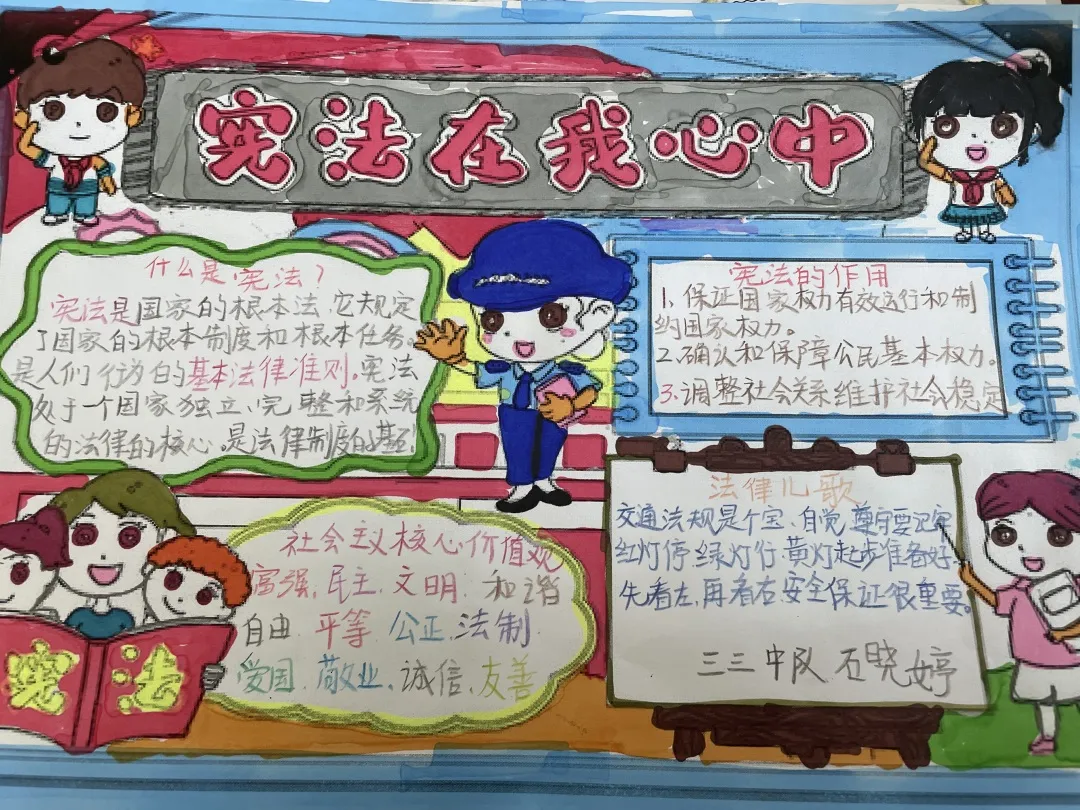 宪法在我心中
什么是宪法？
宪法是国家的根本法,它规定
了国家的根本制度和根本任务。
是人们行为的基本法律准则。宪法
处于一个国家独立、完整和系统
的法律的核心。是法律制度的基
宪法的作用
1、保证国家权力有效运行和制
约国家权力。
2、确认和保障公民基本权力。
3、调整社会关系维护社会稳定
社会主义核心价值观
富强、民主、文明、和谐
自由、平等、公正、法制
爱国、敬业、诚信、友善
法律儿歌
交通法规是个宝、自觉遵守要记牢
红灯停绿灯行黄灯起步准备好、
先看左、再看右安全保证很重要。
三三中队 石晓婷
宪法